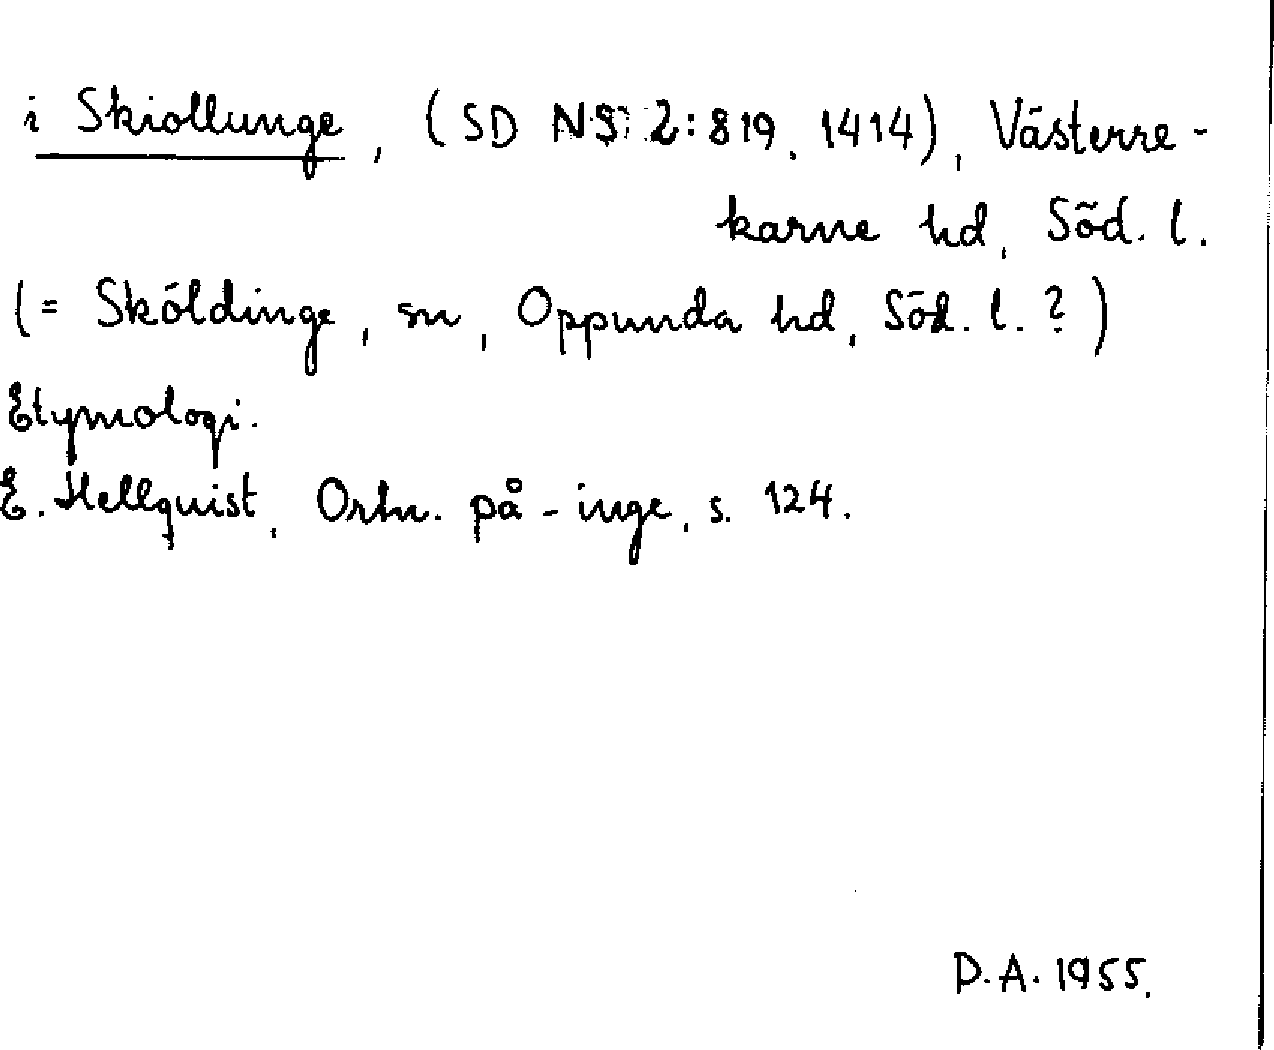 i Skiollunge, (SD NS 2:819, 1414), Västerre-
karne hd, Söd. l.
(= Sköldinge, sn, Oppunda hd, Söd. l. ?)
Etymologi.
E. Hellquist, Ortn. på -inge, s. 124.
D.A. 1955.